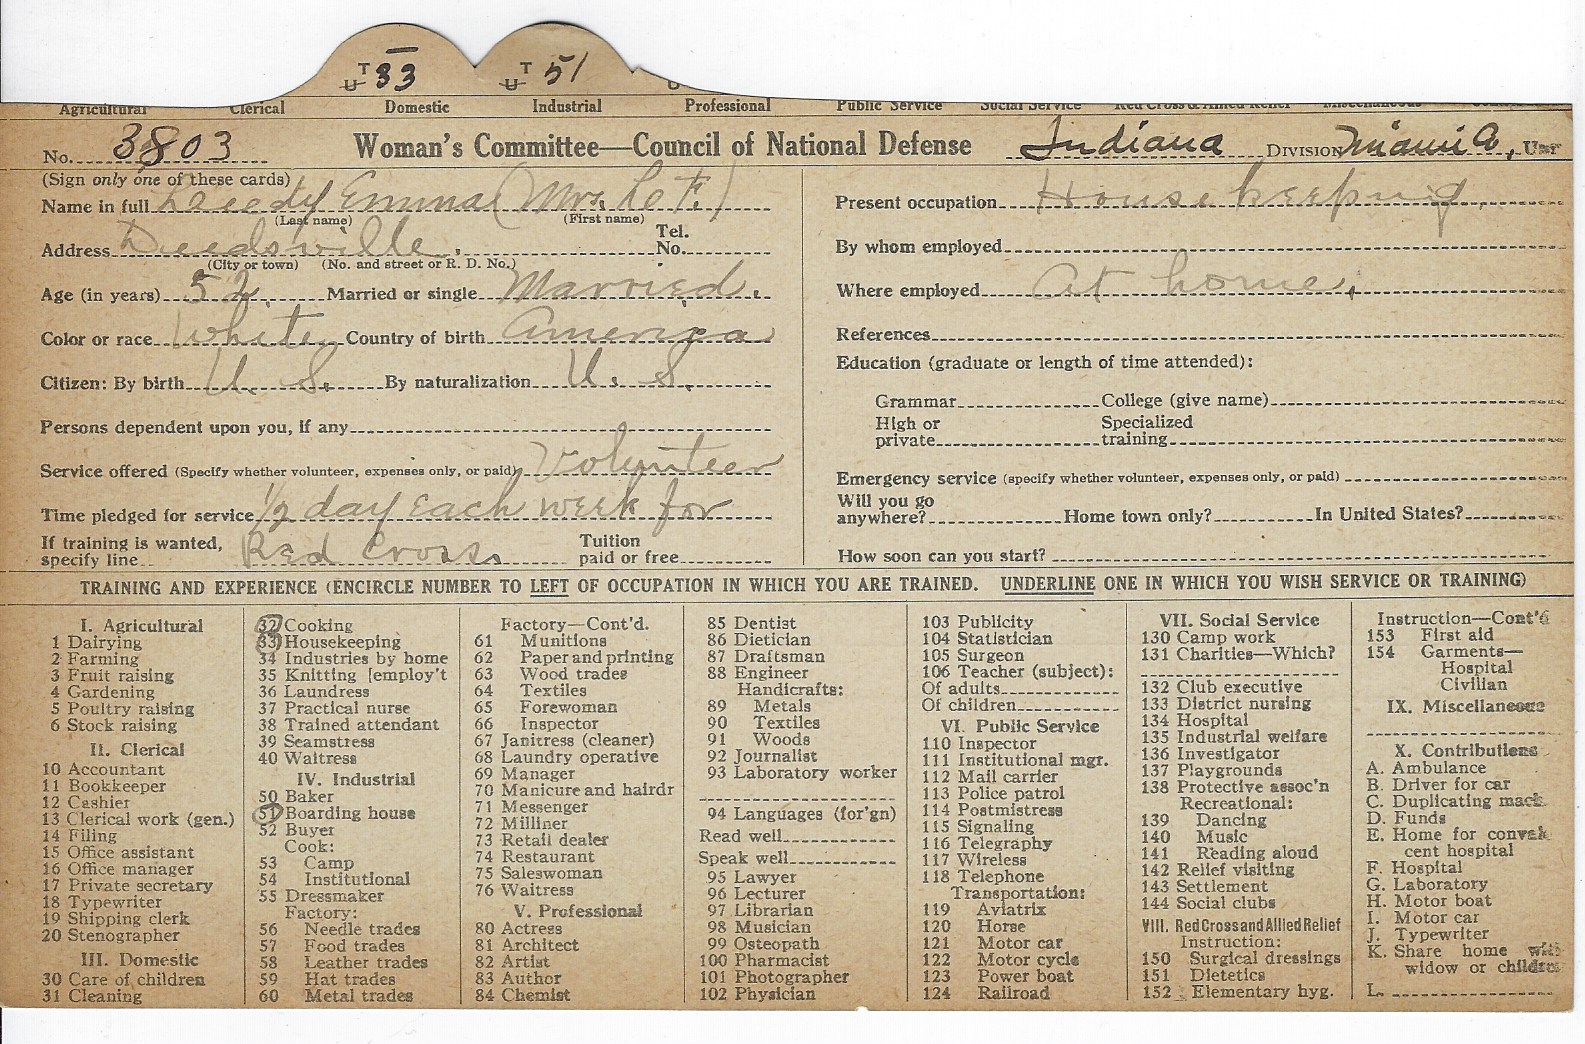 T U 33 T U 51
Agricultural Clerical Domestic Industrial Professional Public Service Social Service Red Cross & Allied Relief Miscellaneous
No. 3803 Woman's Committee—Council of National Defense Indiana DIVISION Miami Co, UNIT
(Sign only one of these cards)
Name in full Emma (Mrs. F.)
(Last name) (First name)
Address Deedsville, Tel. No.
(City or town) (No. and street or R. D. No.)
Age (in years) 52. Married or single Married.
Color or race White Country of birth America
Citizen: By birth U. S. By naturalization U. S.
Persons dependent upon you, if any
Service offered (Specify whether volunteer, expenses only, or paid) Volunteer
Time pledged for service 1/2 day each week for
If training is wanted, specify line Red Cross Tuition paid or free
Present occupation House keeping
By whom employed
Where employed At home,
References
Education (graduate or length of time attended):
Grammar College (give name)
High or private Specialized training
Emergency service (specify whether volunteer, expenses only, or paid)
Will you go anywhere? Home town only? In United States?
How soon can you start?
TRAINING AND EXPERIENCE (ENCIRCLE NUMBER TO LEFT OF OCCUPATION IN WHICH YOU ARE TRAINED. UNDERLINE ONE IN WHICH YOU WISH SERVICE OR TRAINING)
I. Agricultural
1 Dairying
2 Farming
3 Fruit raising
4 Gardening
5 Poultry raising
6 Stock raising
II. Clerical
10 Accountant
11 Bookkeeper
12 Cashier
13 Clerical work (gen.)
14 Filing
15 Office assistant
16 Office manager
17 Private secretary
18 Typewriter
19 Shipping clerk
20 Stenographer
III. Domestic
30 Care of children
31 Cleaning
32 Cooking
33 Housekeeping
34 Industries by home
35 Knitting [employ't
36 Laundress
37 Practical nurse
38 Trained attendant
39 Seamstress
40 Waitress
IV. Industrial
50 Baker
51 Boarding house
52 Buyer
Cook:
53 Camp
54 Institutional
55 Dressmaker
Factory:
56 Needle trades
57 Food trades
58 Leather trades
59 Hat trades
60 Metal trades
Factory—Cont'd.
61 Munitions
62 Paper and printing
63 Wood trades
64 Textiles
65 Forewoman
66 Inspector
67 Janitress (cleaner)
68 Laundry operative
69 Manager
70 Manicure and hairdr
71 Messenger
72 Milliner
73 Retail dealer
74 Restaurant
75 Saleswoman
76 Waitress
V. Professional
80 Actress
81 Architect
82 Artist
83 Author
84 Chemist
85 Dentist
86 Dietician
87 Draftsman
88 Engineer
Handicrafts:
89 Metals
90 Textiles
91 Woods
92 Journalist
93 Laboratory worker
94 Languages (for'gn)
Read well
Speak well
95 Lawyer
96 Lecturer
97 Librarian
98 Musician
99 Osteopath
100 Pharmacist
101 Photographer
102 Physician
103 Publicity
104 Statistician
105 Surgeon
106 Teacher (subject):
Of adults
Of children
VI. Public Service
110 Inspector
111 Institutional mgr.
112 Mail carrier
113 Police patrol
114 Postmistress
115 Signaling
116 Telegraphy
117 Wireless
118 Telephone
Transportation:
119 Aviatrix
120 Horse
121 Motor car
122 Motor cycle
123 Power boat
124 Railroad
VII. Social Service
130 Camp work
131 Charities—Which?
132 Club executive
133 District nursing
134 Hospital
135 Industrial welfare
136 Investigator
137 Playgrounds
138 Protective assoc'n
Recreational:
139 Dancing
140 Music
141 Reading aloud
142 Relief visiting
143 Settlement
144 Social clubs
VIII. Red Cross and Allied Relief
Instruction:
150 Surgical dressings
151 Dietetics
152 Elementary hyg.
Instruction—Cont'd
153 First aid
154 Garments—
Hospital
Civilian
IX. Miscellaneous
X. Contributions
A. Ambulance
B. Driver for car
C. Duplicating mach.
D. Funds
E. Home for conval-
cent hospital
F. Hospital
G. Laboratory
H. Motor boat
I. Motor car
J. Typewriter
K. Share home with
widow or children
L.